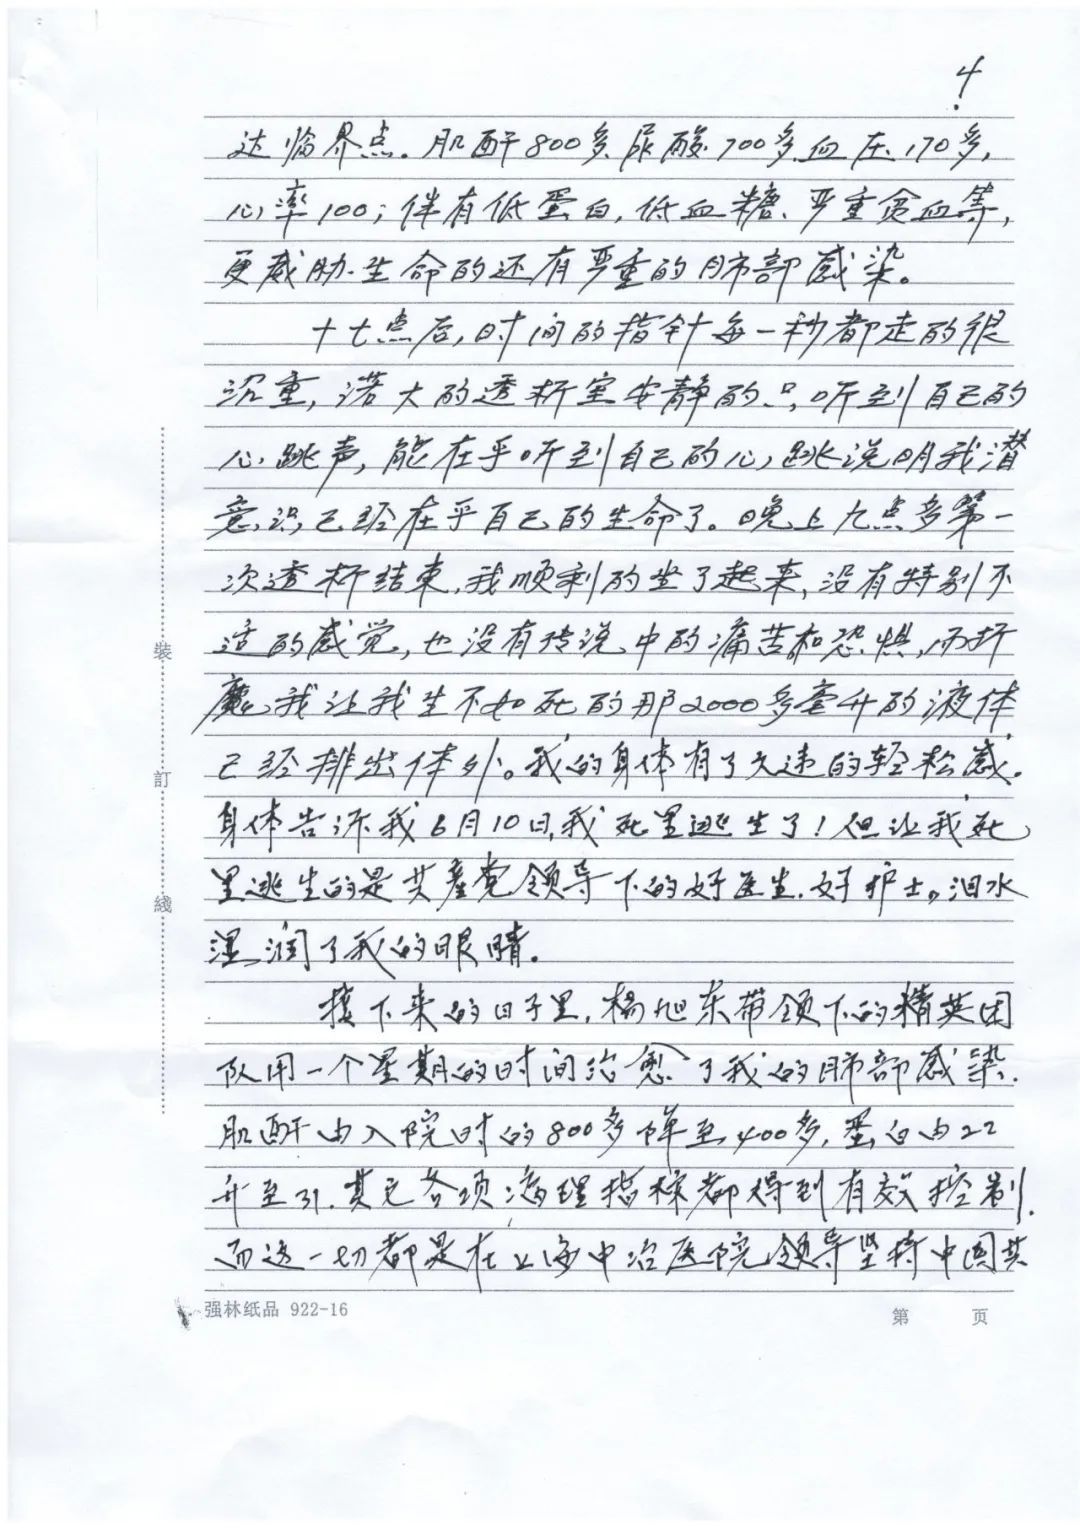 4
达临界点.肌酐800多.尿酸700多.血压170多,
心率100;伴有低蛋白,低血糖、严重贫血等,
更威胁生命的还有严重的肺部感染。
十七点后,时间的指针每一秒都走的很
沉重,诺大的透析室安静的只听到自己的
心跳声,能在乎听到自己的心跳说明我潜
意识已经在乎自己的生命了。晚上九点多第一
次透析结束,我顺利的坐了起来,没有特别不
适的感觉,也没有传说中的痛苦和恐惧,而折
磨我让我生不如死的那2000多毫升的液体
已经排出体外。我的身体有了久违的轻松感.
身体告诉我6月10日,我死里逃生了!但让我死
里逃生的是共产党领导下的好医生.好护士。泪水
湿润了我的眼睛.
接下来的日子里,杨旭东带领下的精英团
队用一个星期的时间治愈了我的肺部感染.
肌酐由入院时的800多降至400多,蛋白由22
升至31.其它各项病理指标都得到有效控制.
而这一切都是在上海中冶医院领导坚持中国共
裝
訂
綫
强林纸品 922-16
第 页